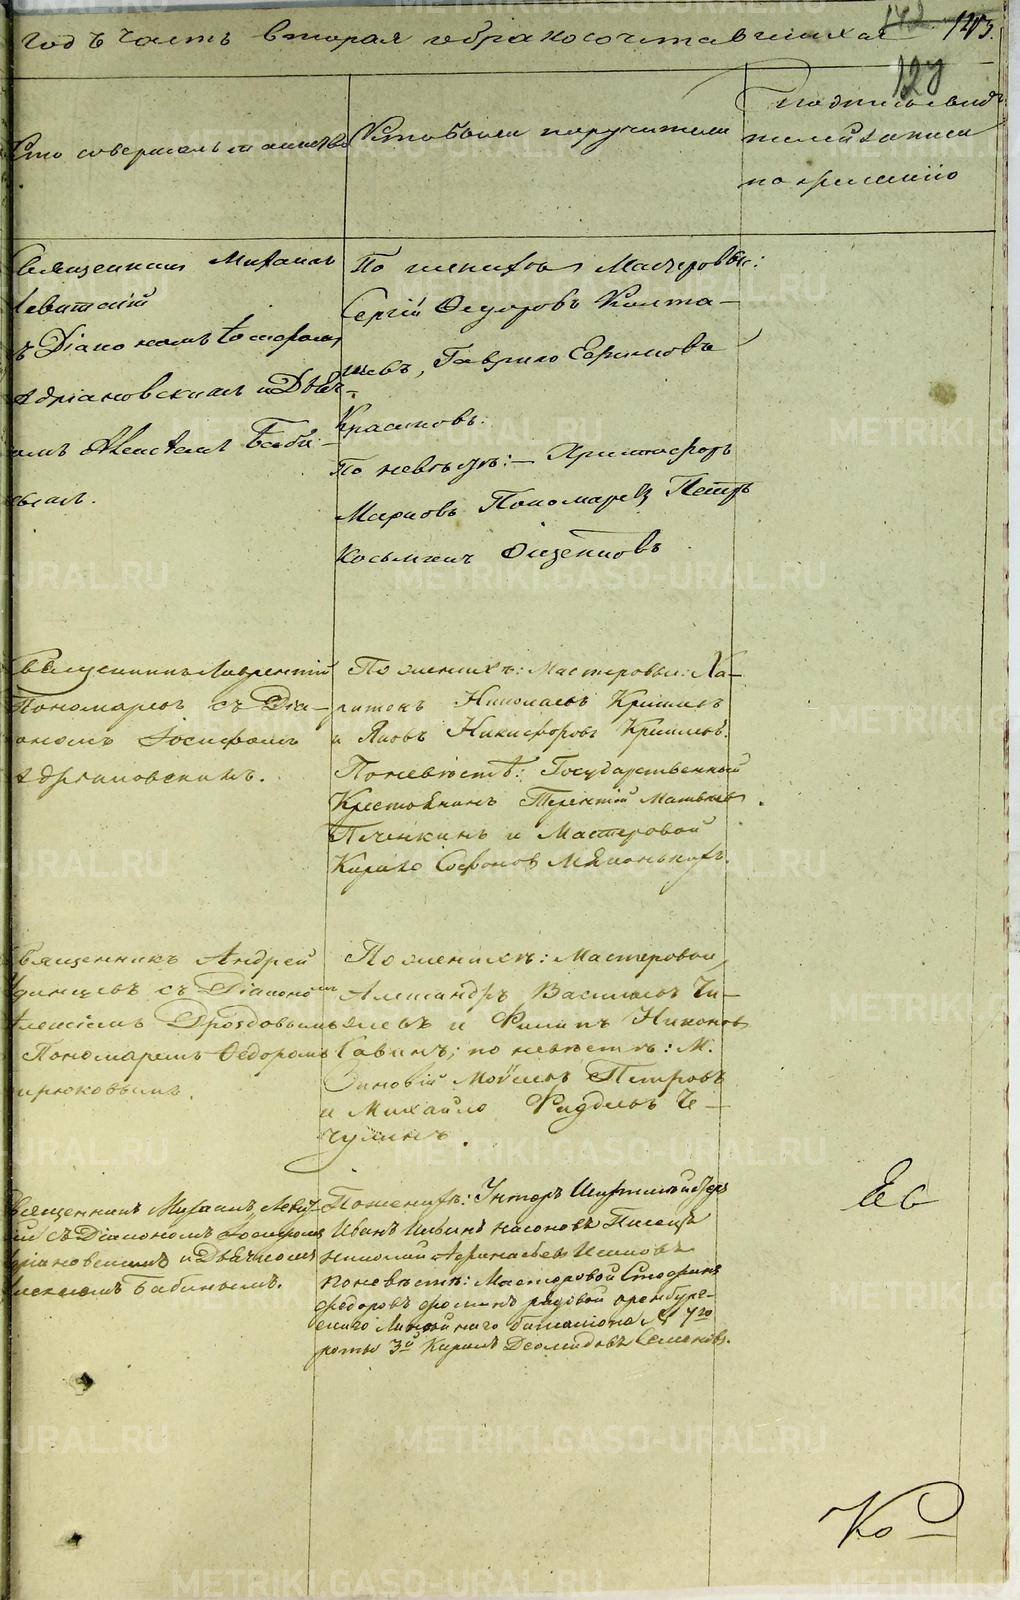 142 143.
годъ часть вторая о бракосочетавшихся
127
Кто совершалъ таинство
Кто были поручители
Подписъ свидѣ-
телей записи
по желанію
Священникъ Михаилъ
Левитскій
съ Діакономъ Іосифомъ
Адріановскимъ и Дьяч-
комъ Алексѣемъ Баби-
нымъ.
По женихѣ Мастеровые:
Сергій Ѳедоровъ Колта-
шевъ, Гаврило Ефимовъ
Красиковъ.
По невѣстѣ: Христофоръ
Марковъ Пономаревъ Петръ
Косьминъ
Священникъ Лаврентій
Пономаревъ съ Діа-
кономъ Іосифомъ
Адріановскимъ.
По женихѣ: Мастеровые: Ха-
ритонъ Николаевъ
и Яковъ Никифоровъ
По невѣстѣ: Государственный
Крестьянинъ Терентій Матвѣевъ
Пченкинъ и Мастеровой
Кирило Софоновъ
Священникъ Андрей
Удинцевъ съ Діакономъ
Алексіемъ Дроздовымъ
Пономаремъ Ѳедоромъ
Бирюковымъ.
По женихѣ: Мастеровой
Александръ Васильевъ
и Филипъ Никоновъ
Савинъ; по невѣстѣ: М.
Зиновій Петровъ
и Михайло Че-
чулинъ.
Священникъ Михаилъ Левит-
скій съ Діакономъ Іосифомъ
Адріановскимъ и Дьячкомъ
Алексѣемъ Бабинымъ.
По женихѣ: Унтеръ
Иванъ Ильинъ Насоновъ Писецъ
Николай Афанасьевъ Исаковъ
По невѣстѣ: Мастеровой
Федоровъ Фоминъ рядовой оренбург-
скаго Линейнаго баталіона № 7го
роты 3й Кирилъ Деомидовъ Семеновъ.
METRIKI.GASO-URAL.RU